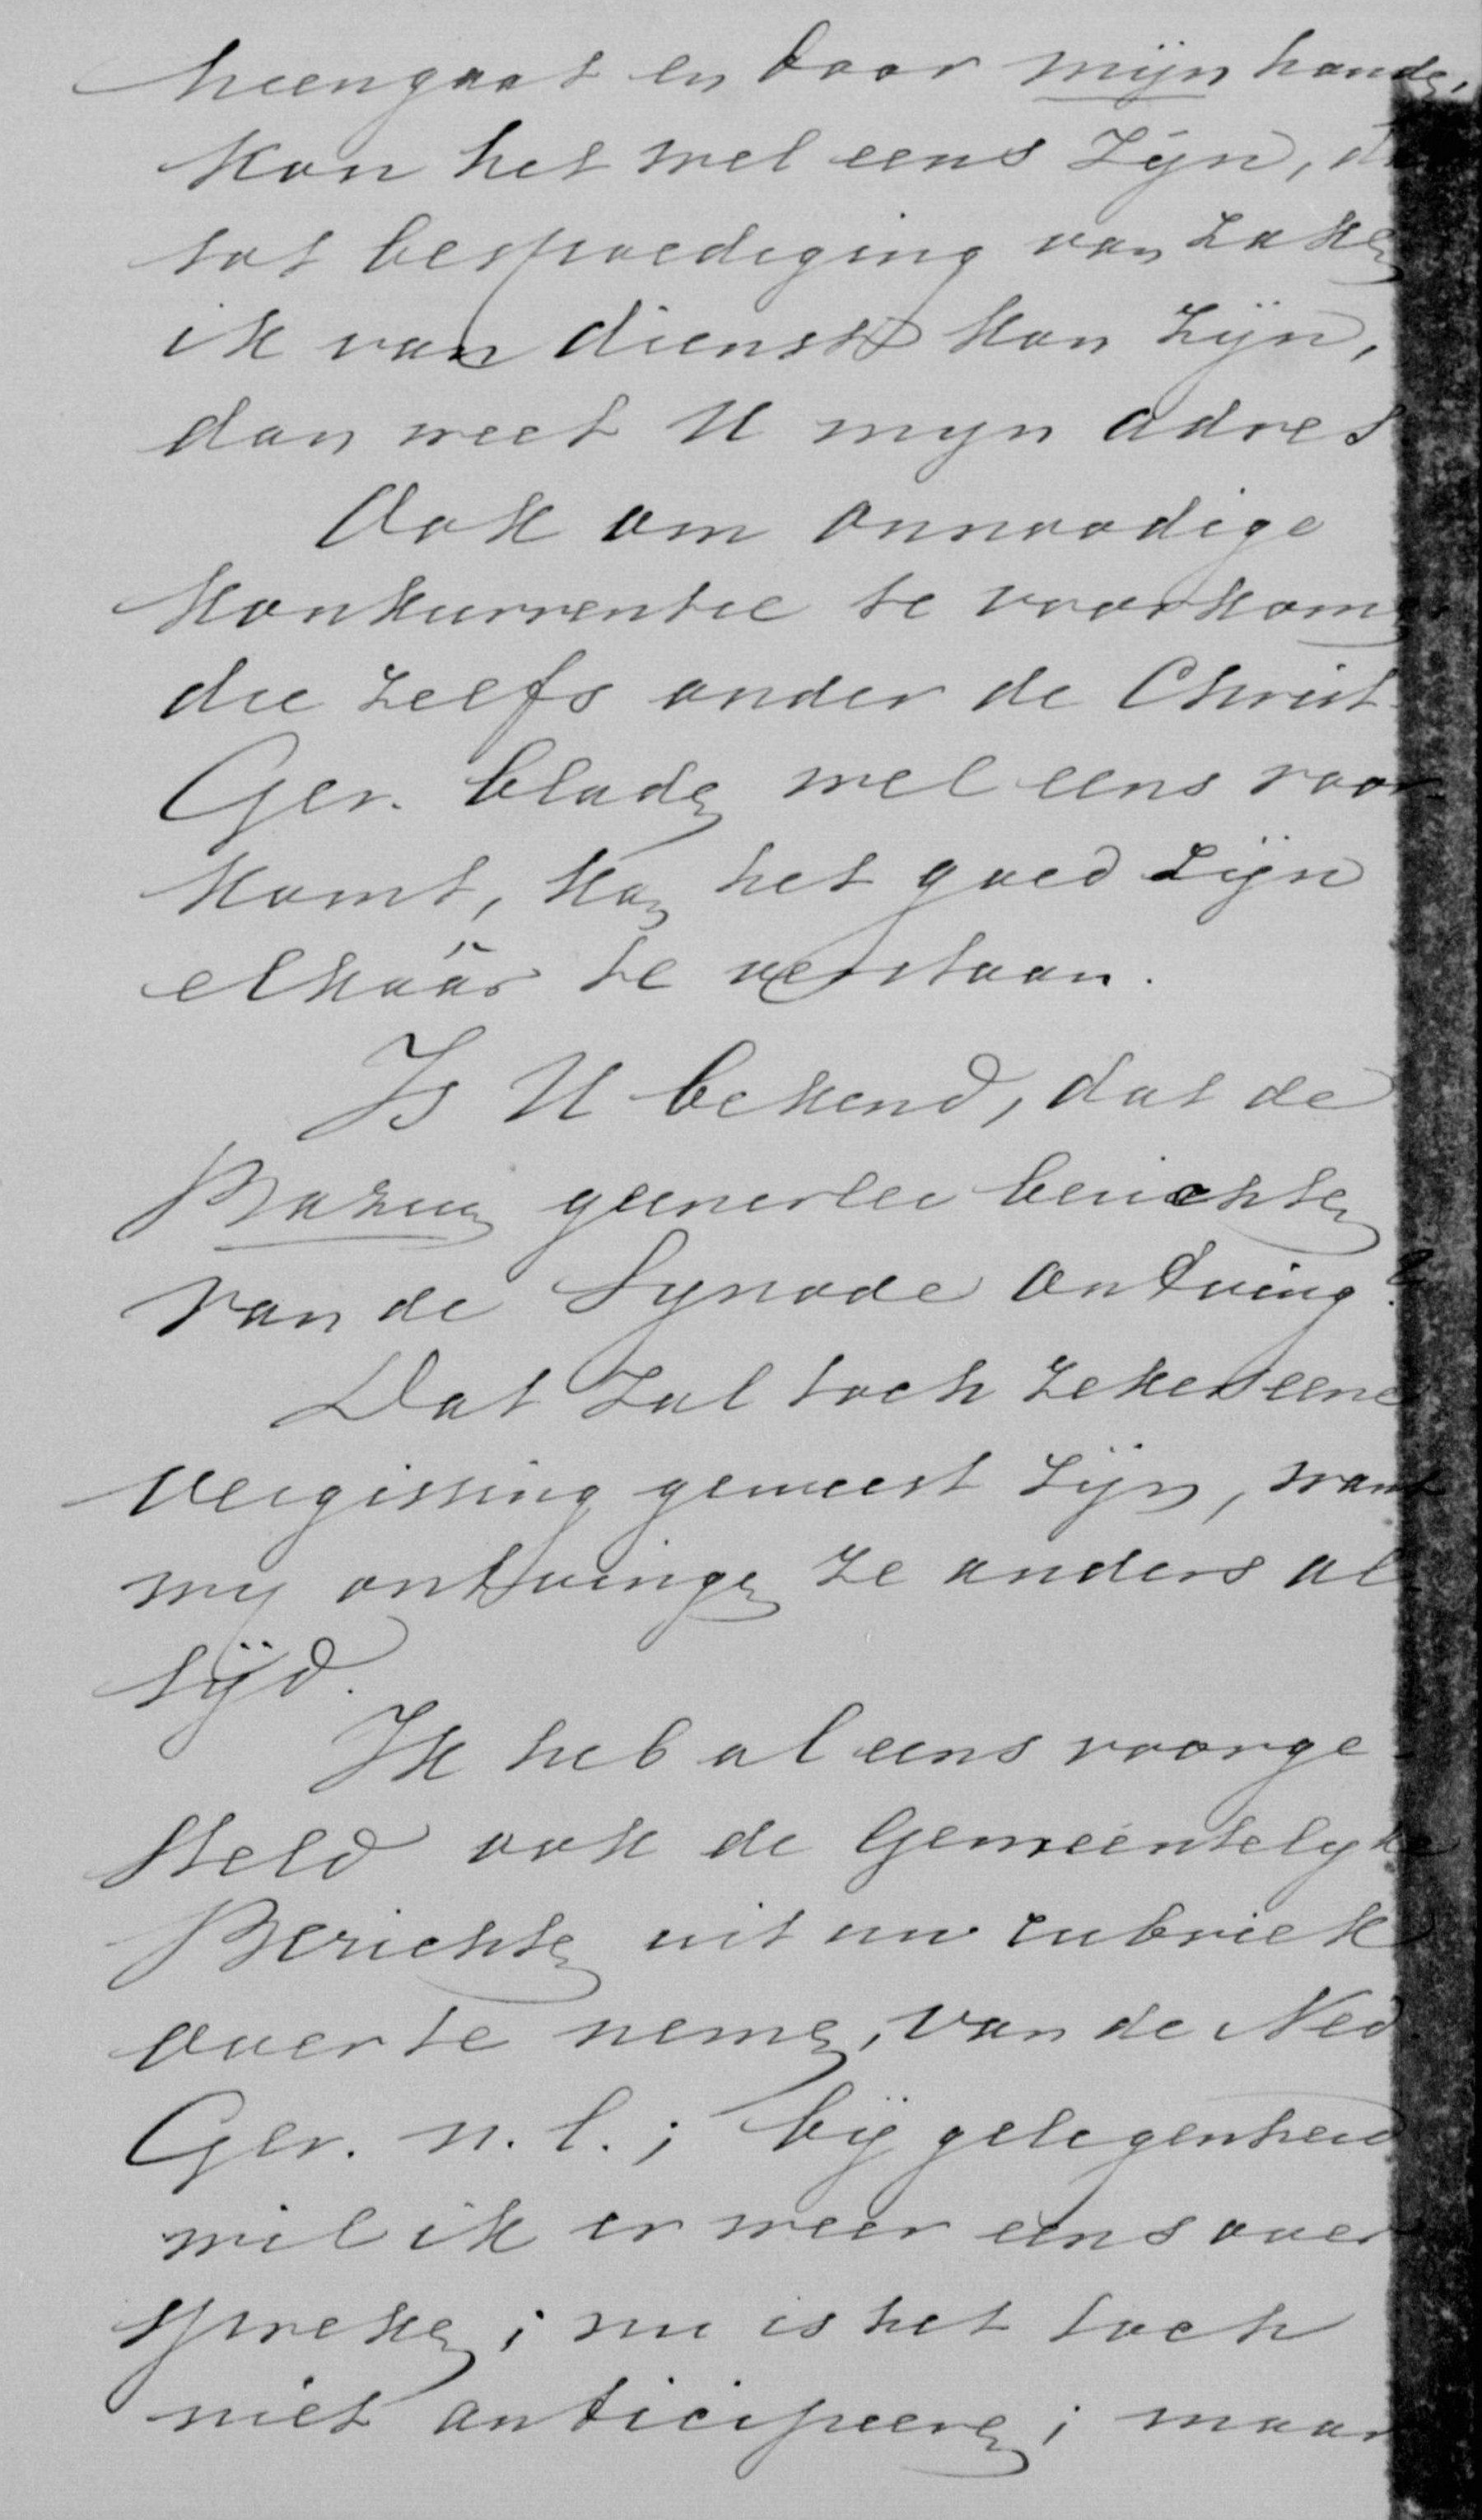 heengaat en door mijn handen,
kon het wel eens zijn, da
tot bespoediging van zaken
ik van dienst kon zijn,
dan weet U mijn adres
Ook om onnoodige
konkurrentie te voorkomen
die zelfs onder de Christ.
Ger. bladen wel eens voor-
komt, kan het goed zijn
elkaâr te verstaan.
Is U bekend, dat de
Bazuin geenerlei berichten
van de Synode ontving?
Dat zal toch zeker eene
vergissing geweest zijn, want
wij ontvingen ze anders al-
tijd.
Ik heb al eens voorge-
steld ook de Gemeentelijke
Berichten uit uw rubriek
over te nemen, van de Ned.
Ger. n.l.; bij gelegenheid
wil ik er weer eens over
spreken; nu is het toch
niet anticipeeren; maar